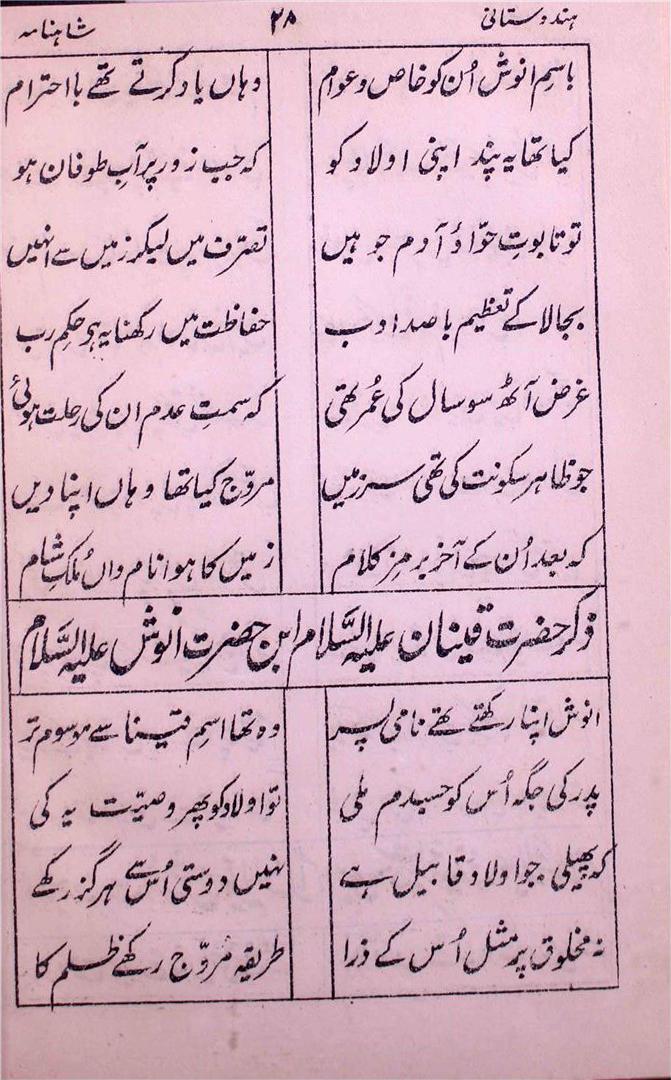 ہندوستانی ۲۸ شاہنامہ
باسمِ انوش اُن کو خاص و عوام وہاں یاد کرتے تھے با احترام
کیا تھا یہ پند اپنی اولاد کو کہ جب زور پر آبِ طوفان ہو
تو تابوتِ حوّا و آدم جو ہیں تصرّف میں لیکر زمیں سے انہیں
بجالا کے تعظیم با صد ادب حفاظت میں رکھنا یہ ہو حکمِ رب
غرض آٹھ سو سال کی عُمر تھی کہ سمتِ عدم ان کی رحلت ہوئی
جو ظاہر سکونت کی تھی سرزمیں مروّج کیا تھا وہاں اپنا دیں
کہ بعد اُن کے آخر برمزِ کلام زمیں کا ہوا نام واں مُلکِ شام
ذکر حضرت قینان علیہ السَّلام ابن حضرت انوش علیہ السَّلام
انوش اپنا رکھتے تھے نامی پسر وہ تھا اسمِ قینا سے موسوم تر
پدر کی جگہ اُس کو جسدم ملی تو اولاد کو پھر وصیّت یہ کی
کہ پھیلی جو اولادِ قابیل ہے نہیں دوستی اُس سے ہرگز رکھے
نہ مخلوق پر مثل اُس کے ذرا طریقہ مُروّج رکھے ظلم کا